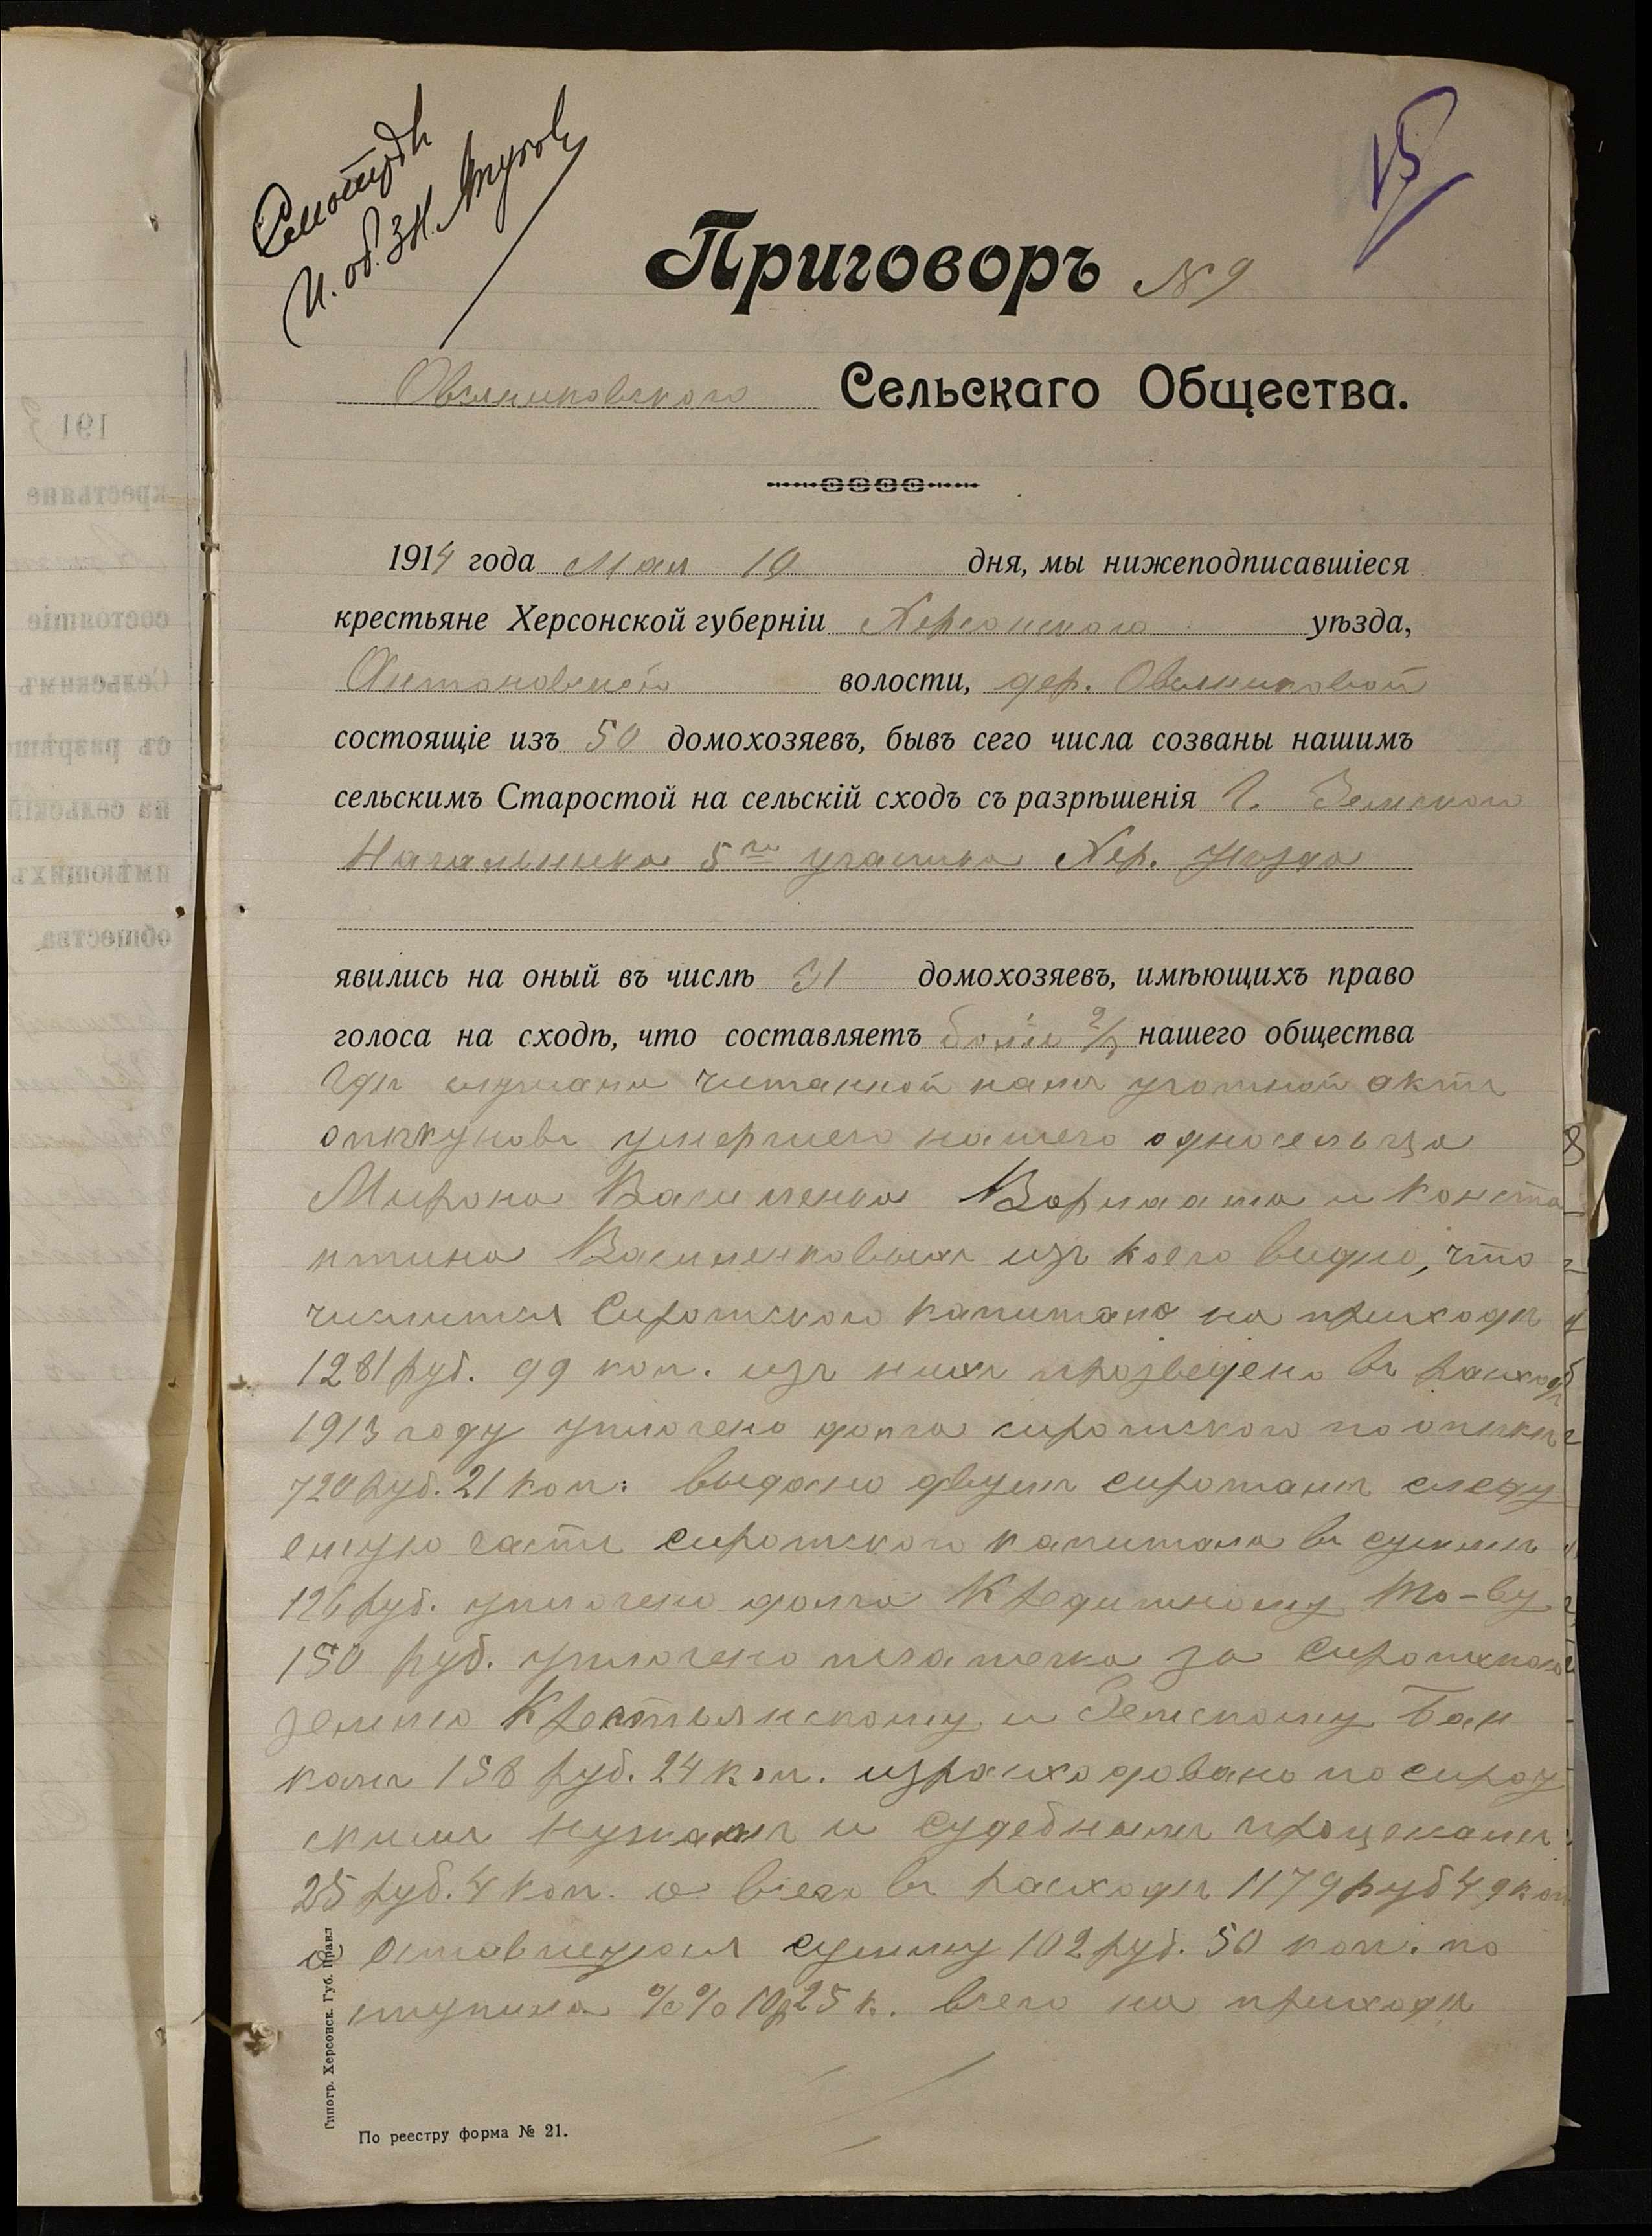 Смотрѣлъ
И. об. З.Н.
15
Приговоръ №9
Сельскаго Общества.
1914 года Мая 10 дня, мы нижеподписавшіеся
крестьяне Херсонской губерніи Херсонскаго уѣзда,
волости, дер.
состоящіе изъ 50 домохозяевъ, бывъ сего числа созваны нашимъ
сельскимъ Старостой на сельскій сходъ съ разрѣшенія Г. Земского
Начальника 5го участка Хер. уѣзда
явились на оный въ числѣ 31 домохозяевъ, имѣющихъ право
голоса на сходѣ, что составляетъ болѣе 2/3 нашего общества
Гдѣ читанной намъ учотной актъ
опѣкуновъ умершего нашего односельца
Мирона Василенка и Конста
нтина Василенковыхъ изъ коего видно, что
числится Сиротского капитало на приходѣ
1281 руб. 99 коп. изъ нихъ прозведено въ расходѣ
1913 году уплочено долга сиротского по опѣкѣ
720 руб. 21 коп: выдано двумъ сиротамъ следу
емую часть сиротского капитала въ суммѣ
126 руб. уплочено долга Кредитному То-ву
150 руб. уплочено платежа за Сиротскою
землю Крестьянскому и Земскому Бан
камъ 158 руб. 24 коп. израсходовано по сирот
скимъ нуждамъ и судебнымъ процесамъ
25 руб. 4 коп. а всего въ расходѣ 1179 руб 49 коп
а оставшуюся сумму 102 руб. 50 коп. по
ступило %% 10р25 к. всего на приходѣ
Типогр. Херсонск. Губ. Правл
По реестру форма № 21.
191
крестьяне
состоящіе
Сельскимъ
съ разрѣш
на сельскій
имѣющихъ
общества